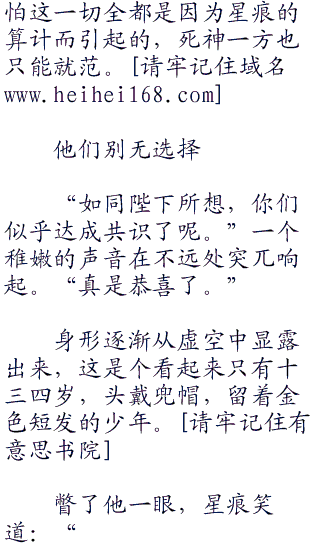 怕这一切全都是因为星痕的
算计而引起的，死神一方也
只能就范。[请牢记住域名
www.heihei168.com]
他们别无选择
“如同陛下所想，你们
似乎达成共识了呢。”一个
稚嫩的声音在不远处突兀响
起。“真是恭喜了。”
身形逐渐从虚空中显露
出来，这是个看起来只有十
三四岁，头戴兜帽，留着金
色短发的少年。[请牢记住有
意思书院]
瞥了他一眼，星痕笑
道：“